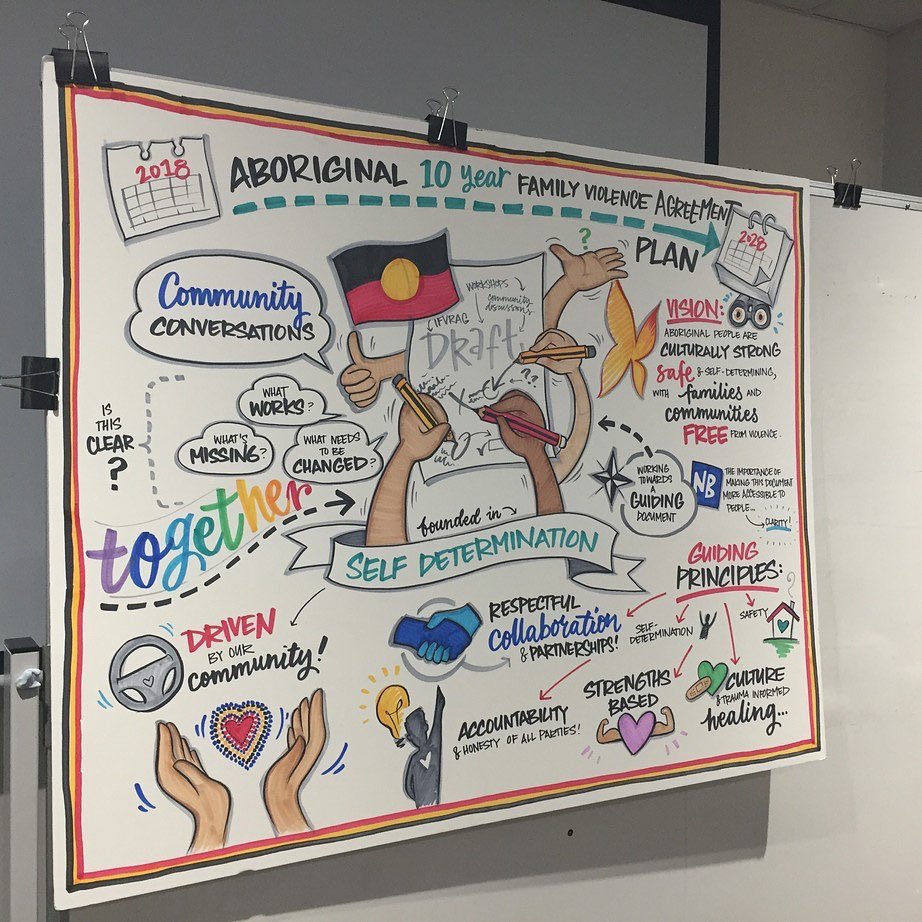 2018
ABORIGINAL 10 year FAMILY VIOLENCE AGREEMENT
PLAN
2028
Community
CONVERSATIONS
WHAT
WORKS?
WHAT'S
MISSING?
WHAT NEEDS
TO BE
CHANGED?
IS
THIS
CLEAR
?
together
WORKSHOPS
community
discussions
IFVRAG
Draft
??
?
VISION:
ABORIGINAL PEOPLE ARE
CULTURALLY STRONG
safe & SELF-DETERMINING,
WITH families AND
communities
FREE FROM VIOLENCE.
WORKING
TOWARDS
A
GUIDING
DOCUMENT
NB
THE IMPORTANCE OF
MAKING THIS DOCUMENT
MORE ACCESSIBLE TO
PEOPLE...
CLARITY!
founded in
SELF DETERMINATION
DRIVEN
BY OUR
community!
RESPECTFUL
Collaboration
& PARTNERSHIPS!
GUIDING
PRINCIPLES:
SELF-
DETERMINATION
SAFETY
?
ACCOUNTABILITY
& HONESTY OF ALL PARTIES!
STRENGTHS
BASED
CULTURE
& TRAUMA INFORMED
healing...